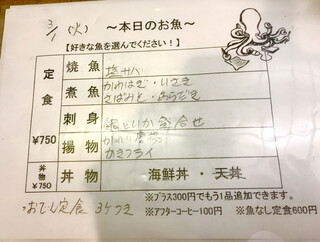 3/1 (火) ～本日のお魚～
【好きな魚を選んでください！】
定食 ¥750
焼魚 塩サバ
煮魚 かわはぎ・いさき
さばみそ・あらだき
刺身 いか 盛合せ
揚物 かれい唐揚
かきフライ
丼物 ¥750 丼物 海鮮丼・天丼
※プラス300円でもう1品追加できます。
・おでん定食 3ケつき ※アフターコーヒー100円 ※魚なし定食600円